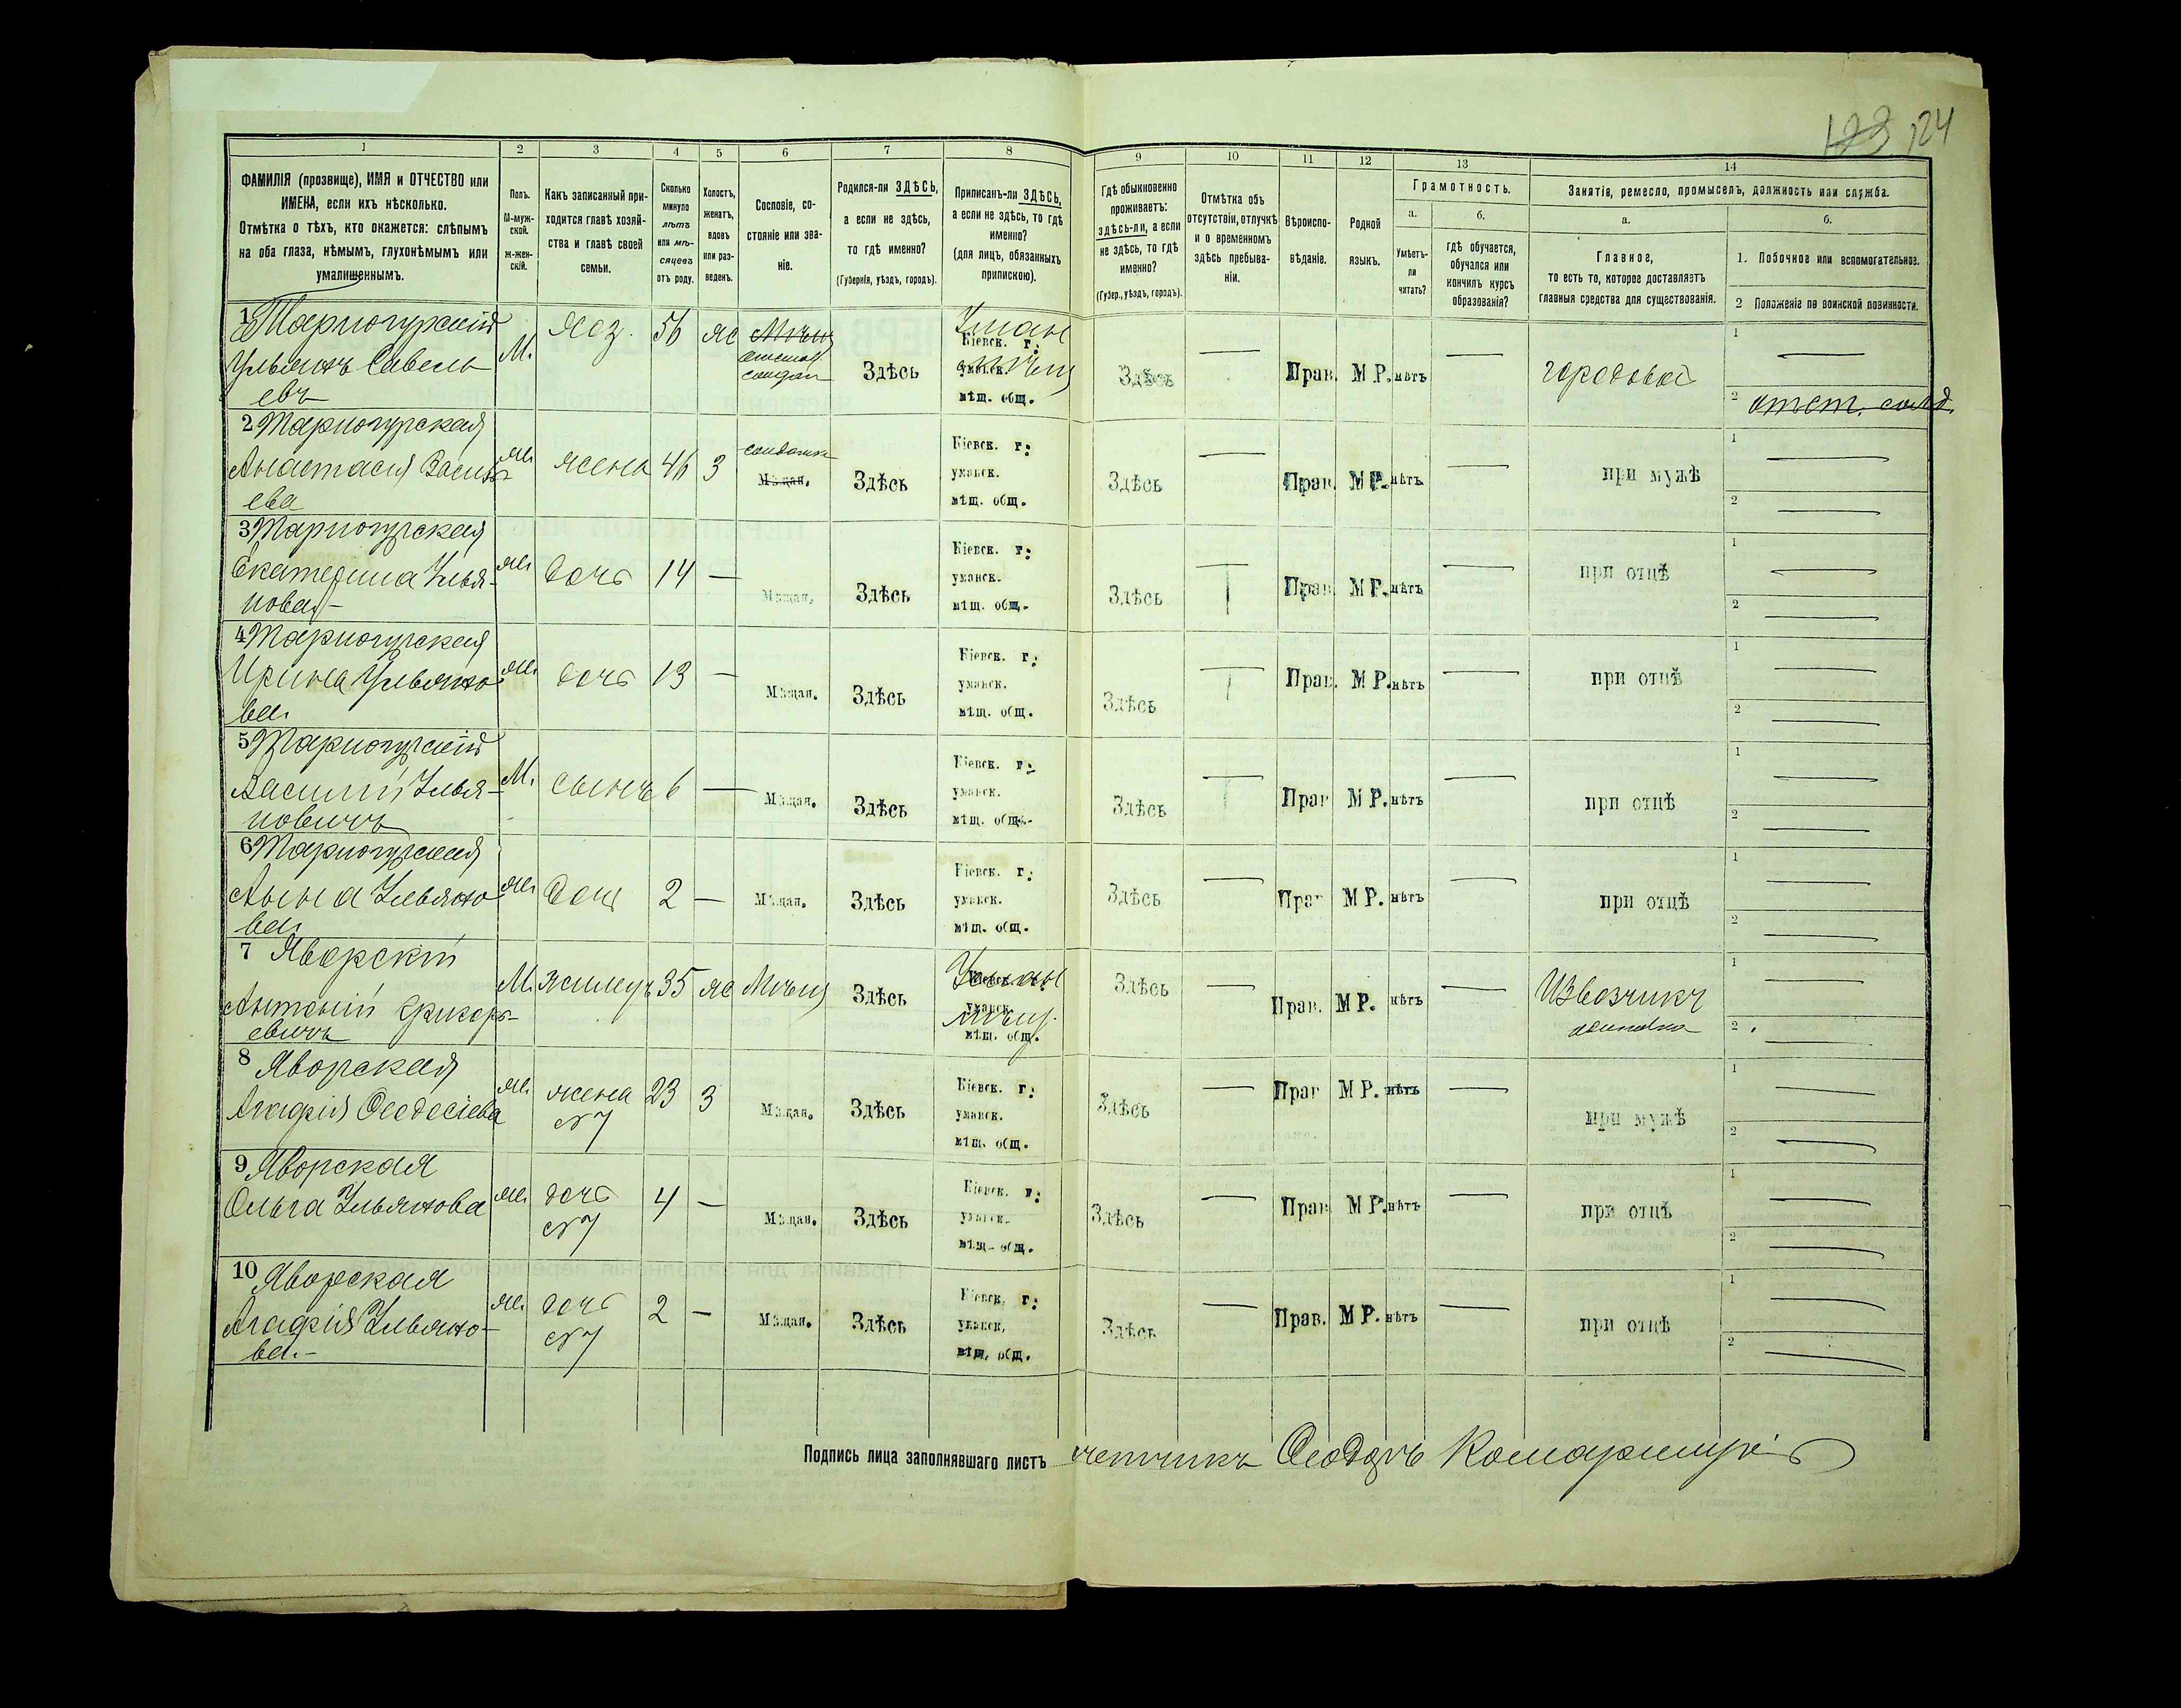 123 124
1 2 3 4 5 6 7 8 9 10 11 12 13 14
ФАМИЛІЯ (прозвище), ИМЯ и ОТЧЕСТВО или
ИМЕНА, если ихъ нѣсколько.
Отмѣтка о тѣхъ, кто окажется: слѣпымъ
на оба глаза, нѣмымъ, глухонѣмымъ или
умалишеннымъ.
Полъ.
М-муж-
ской.
Ж-жен-
скій.
Какъ записанный при-
ходится главѣ хозяй-
ства и главѣ своей
семьи.
Сколько
минуло
лѣтъ
или мѣ-
сяцевъ
отъ роду.
Холостъ,
женатъ,
вдовъ
или раз-
веденъ.
Сословіе, со-
стояніе или зва-
ніе.
Родился-ли ЗДѢСЬ,
а если не здѣсь,
то гдѣ именно?
(Губернія, уѣздъ, городъ).
Приписанъ-ли ЗДѢСЬ,
а если не здѣсь, то гдѣ
именно?
(для лицъ, обязанныхъ
припискою).
Гдѣ обыкновенно
проживаетъ:
здѣсь-ли, а если
не здѣсь, то гдѣ
именно?
(Губер., уѣздъ, городъ).
Отмѣтка объ
отсутствіи, отлучкѣ
и о временномъ
здѣсь пребыва-
ніи.
Вѣроиспо-
вѣданіе.
Родной
языкъ.
Грамотность.
а.
Умѣетъ-
ли
читать?
б.
гдѣ обучается,
обучался или
кончилъ курсъ
образованія?
Занятія, ремесло, промыселъ, должность или служба.
а.
Главное,
то есть то, которое доставляетъ
главныя средства для существованія.
б.
1. Побочное или вспомогательное.
2 Положеніе по воинской повинности.
1 Тарногурскій
Ульянъ Савель-
евъ
М. хоз. 56 же Мѣщ
отстав
солдат
Здѣсь
Умань
Кіевск. г:
уманск.
мѣщ
мѣщ. общ.
Здѣсь — Прав. М Р. нѣтъ — городовой
1 —
2 отст. солд.
2 Тарногурская
Анастасія Василь-
ева
Ж. жена 46 З солдатка
Мѣщан. Здѣсь
Кіевск. г:
уманск.
мѣщ. общ.
Здѣсь — Прав. М Р. нѣтъ — при мужѣ
1 —
2 —
3 Тарногурская
Екатерина Улья-
нова —
Ж. дочь 14 — Мѣщан. Здѣсь
Кіевск. г:
уманск.
мѣщ. общ.
Здѣсь — Прав М Р. нѣтъ — при отцѣ
1 —
2 —
4 Тарногурская
Ирина Ульяно-
ва
Ж. дочь 13 — Мѣщан. Здѣсь
Кіевск. г:
уманск.
мѣщ. общ.
Здѣсь — Прав. М Р. нѣтъ — при отцѣ
1 —
2 —
5 Тарногурскій
Василій Улья-
новичъ
М. сынъ 6 — Мѣщан. Здѣсь
Кіевск. г:
уманск.
мѣщ. общ.
Здѣсь — Прав М Р. нѣтъ — при отцѣ
1 —
2 —
6 Тарногурская
Анна Ульяно-
ва
Ж. дочь 2 — Мѣщан. Здѣсь
Кіевск. г:
уманск.
мѣщ. общ.
Здѣсь — Прав М Р. нѣтъ — при отцѣ
1 —
2 —
7 Яворскій
Антоній Григорь-
евичъ
М. жилецъ 35 же Мѣщ Здѣсь
Умань
Кіевск. г:
уманск.
мѣщ.
мѣщ. общ.
Здѣсь — Прав. М Р. нѣтъ — Извозчикъ
1 —
2 —
8 Яворская
Агафія Ѳеодосіева
Ж. жена
№7
23 З Мѣщан. Здѣсь
Кіевск. г:
уманск.
мѣщ. общ.
Здѣсь — Прав М Р. нѣтъ — при мужѣ
1 —
2 —
9 Яворская
Ольга Ульянова
Ж. дочь
№7
4 — Мѣщан. Здѣсь
Кіевск. г:
уманск.
мѣщ. общ.
Здѣсь — Прав М Р. нѣтъ — при отцѣ
1 —
2 —
10 Яворская
Агафія Ульяно-
ва. —
Ж. дочь
№7
2 — Мѣщан. Здѣсь
Кіевск. г:
уманск.
мѣщ. общ.
Здѣсь — Прав. М Р. нѣтъ — при отцѣ
1 —
2 —
Подпись лица заполнявшаго листъ счетчикъ Ѳеодоръ Комарницкій